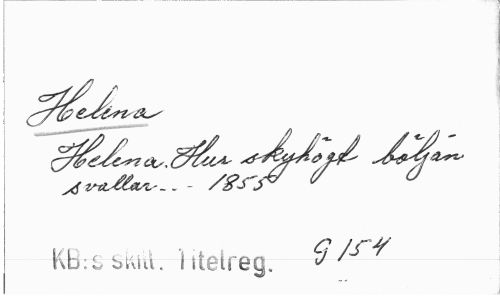 Helena
Helena. Hur skyhögt böljan
svallar... 1855
KB:s skill. Titelreg. G 154